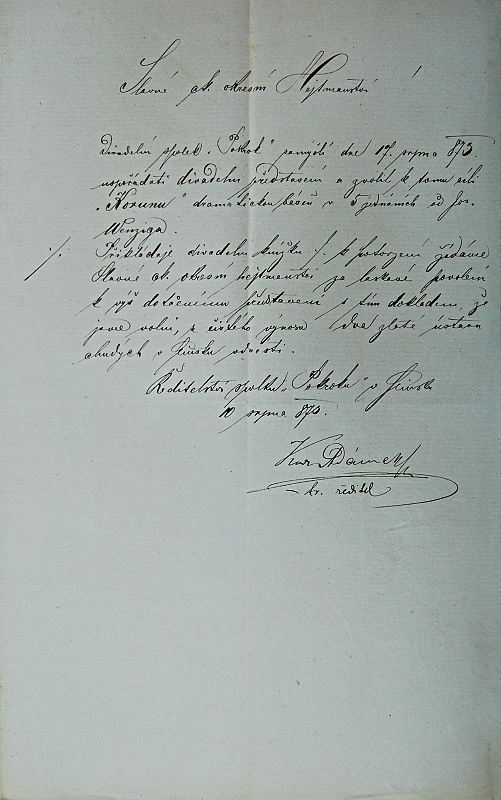 Slavné ck. okresní Hejtmanství
Divadelní spolek „Pokrok“ zamýšlí dne 17. srpna 873.
uspořádati divadelní představení a zvolil k tomu cíli
„Korunu“ dramatickou báseň v 5 jednáních od Jos.
Wenziga.
·/. Přikládaje divadelní knížku ·/. k potvrzení žádáme
Slavné ck. okresní hejtmanství za laskavé povolení
k výš dotčenému představení s tím dokladem, že
jsme volni, z čistého výnosu dva zlaté ústavu
chudých v Hlinsku odvésti.
Ředitelství spolku „Pokroku“ v Hlinsku
10 srpna 873.
Kar. Adámek
br. ředitel